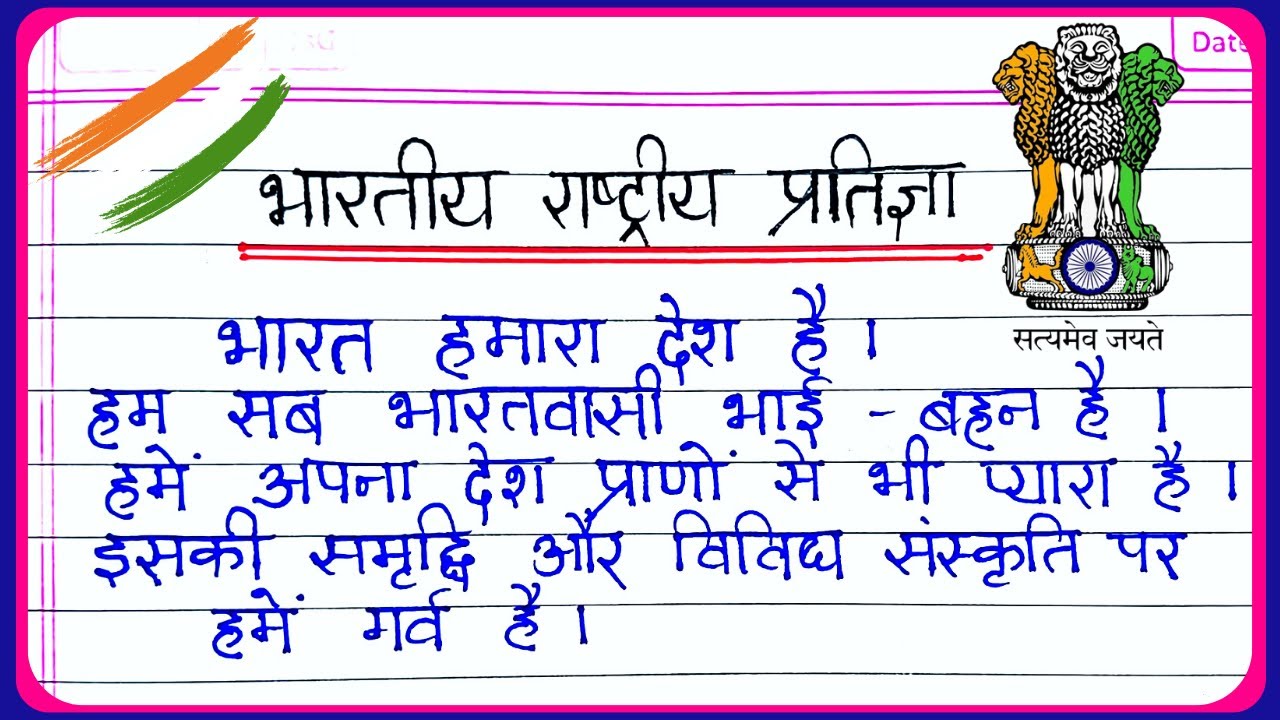 Date
भारतीय राष्ट्रीय प्रतिज्ञा
सत्यमेव जयते
भारत हमारा देश है।
हम सब भारतवासी भाई - बहन है।
हमें अपना देश प्राणों से भी प्यारा है।
इसकी समृद्धि और विविध संस्कृति पर
हमें गर्व है।